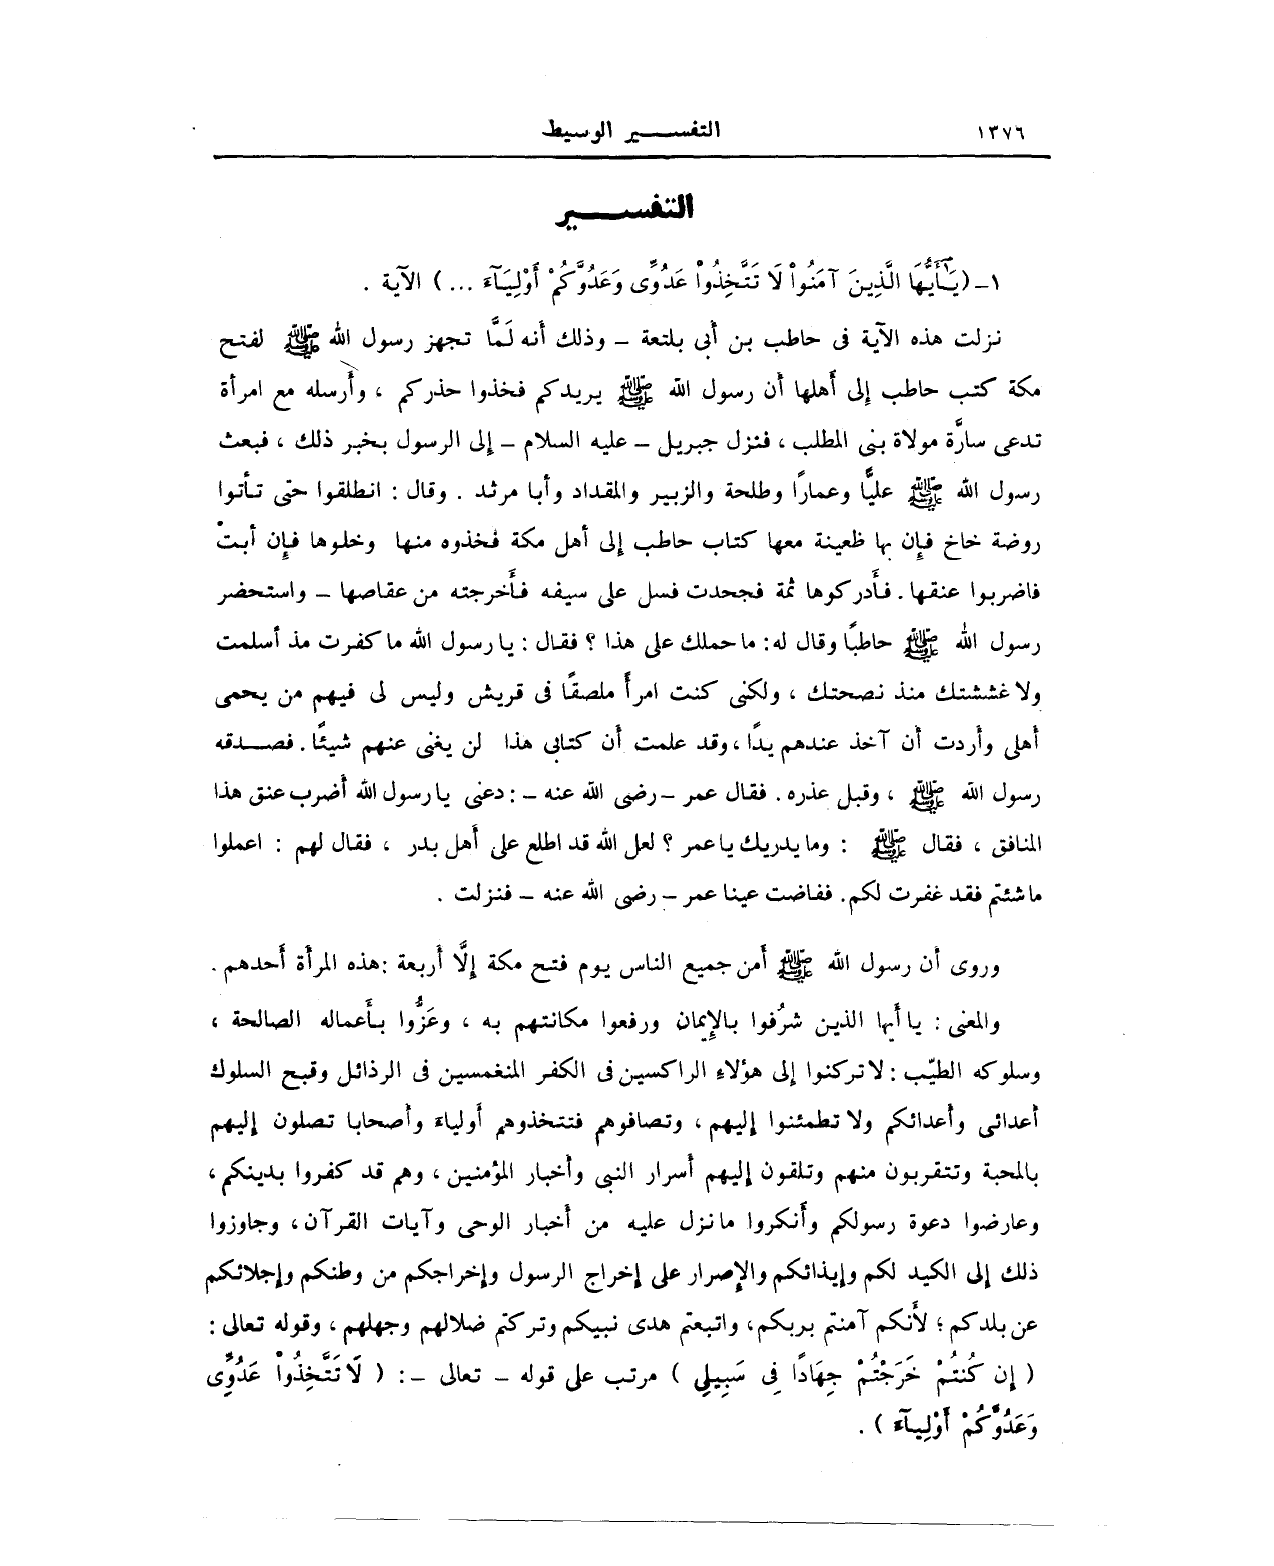 ١٣٧٦
التفسير الوسيط
التفسير
١ـ (يَـٰٓأَيُّهَا الَّذِينَ آمَنُواْ لَا تَتَّخِذُواْ عَدُوِّى وَعَدُوَّكُمْ أَوْلِيَآءَ ...) الآية .
نزلت هذه الآية فى حاطب بن أبى بلتعة ــ وذلك أنه لَمَّا تجهز رسول الله ﷺ لفتح
مكة كتب حاطب إلى أهلها أن رسول الله ﷺ يريدكم فخذوا حذركم ، وأرسله مع امرأة
تدعى سارَّة مولاة بنى المطلب ، فنزل جبريل ــ عليه السلام ــ إلى الرسول بخبر ذلك ، فبعث
رسول الله ﷺ عليًّا وعمارًا وطلحة والزبير والمقداد وأبا مرثد . وقال : انطلقوا حتى تأتوا
روضة خاخ فإن بها ظعينة معها كتاب حاطب إلى أهل مكة فخذوه منها وخلوها فإن أبتْ
فاضربوا عنقها . فأدركوها ثمة فجحدت فسل على سيفه فأخرجته من عقاصها ــ واستحضر
رسول الله ﷺ حاطبًا وقال له : ما حملك على هذا ؟ فقال : يا رسول الله ما كفرت مذ أسلمت
ولا غششتك منذ نصحتك ، ولكنى كنت امرأً ملصقًا فى قريش وليس لى فيهم من يحمى
أهلى وأردت أن آخذ عندهم يدًا ، وقد علمت أن كتابى هذا لن يغنى عنهم شيئًا . فصدقه
رسول الله ﷺ ، وقبل عذره . فقال عمر ــ رضى الله عنه ــ : دعنى يا رسول الله أضرب عنق هذا
المنافق ، فقال ﷺ : وما يدريك يا عمر ؟ لعل الله قد اطلع على أهل بدر ، فقال لهم : اعملوا
ما شئتم فقد غفرت لكم . ففاضت عينا عمر ــ رضى الله عنه ــ فنزلت .
وروى أن رسول الله ﷺ أمن جميع الناس يوم فتح مكة إلَّا أربعة : هذه المرأة أحدهم .
والمعنى : يا أيها الذين شرُفوا بالإيمان ورفعوا مكانتهم به ، وعَزُّوا بأعماله الصالحة ،
وسلوكه الطيّب : لا تركنوا إلى هؤلاء الراكسين فى الكفر المنغمسين فى الرذائل وقبح السلوك
أعدائى وأعدائكم ولا تطمئنوا إليهم ، وتصافوهم فتتخذوهم أولياء وأصحابا تصلون إليهم
بالمحبة وتتقربون منهم وتلقون إليهم أسرار النبى وأخبار المؤمنين ، وهم قد كفروا بدينكم ،
وعارضوا دعوة رسولكم وأنكروا ما نزل عليه من أخبار الوحى وآيات القرآن ، وجاوزوا
ذلك إلى الكيد لكم وإيذائكم والإصرار على إخراج الرسول وإخراجكم من وطنكم وإجلائكم
عن بلدكم ؛ لأنكم آمنتم بربكم ، واتبعتم هدى نبيكم وتركتم ضلالهم وجهلهم ، وقوله تعالى :
( إِن كُنتُمْ خَرَجْتُمْ جِهَادًا فِى سَبِيلِى ) مرتب على قوله ــ تعالى ــ : ( لَا تَتَّخِذُواْ عَدُوِّى
وَعَدُوَّكُمْ أَوْلِيآءَ ) .